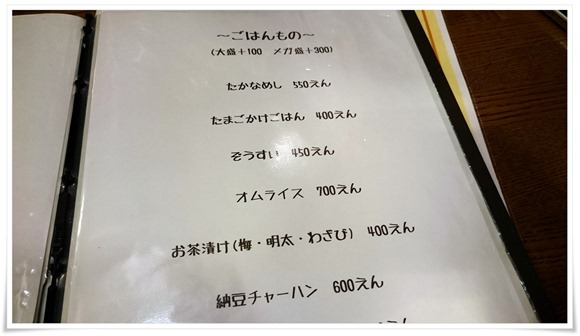 ～ごはんもの～
(大盛＋100　メガ盛＋300)
たかなめし　550えん
たまごかけごはん　400えん
ぞうすい　450えん
オムライス　700えん
お茶漬け(梅・明太・わさび)　400えん
納豆チャーハン　600えん